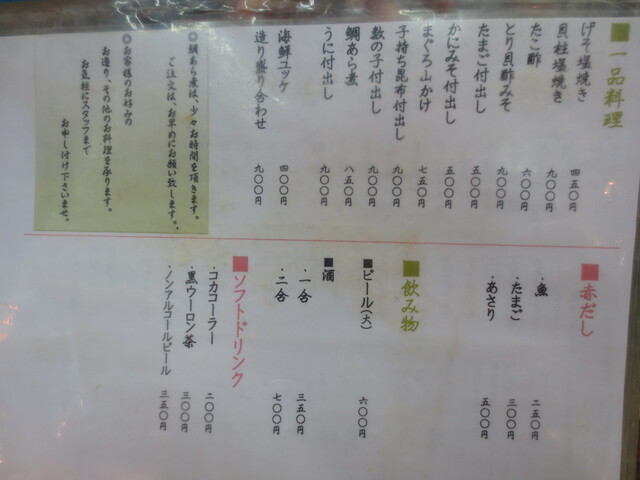 ■一品料理
げそ塩焼き 四五〇円
貝柱塩焼き 九〇〇円
たこ酢 六〇〇円
とり貝酢みそ 九〇〇円
たまご付出し 五〇〇円
かにみそ付出し 五〇〇円
まぐろ山かけ 七五〇円
子持ち昆布付出し 九〇〇円
数の子付出し 九〇〇円
鯛あら煮 八五〇円
うに付出し 九〇〇円
海鮮ユッケ 四〇〇円
造り盛り合わせ 九〇〇円
◎鯛あら煮は、少々お時間を頂きます。
ご注文は、お早めにお願い致します。
◎お客様のお好みの
お造り、その他のお料理を承ります。
お気軽にスタッフまで
お申し付け下さいませ。
■赤だし
・魚 二五〇円
・たまご 三〇〇円
・あさり 五〇〇円
■飲み物
■ビール(大) 六〇〇円
■酒
・一合 三五〇円
・二合 七〇〇円
■ソフトドリンク
・コカコーラー 二〇〇円
・黒ウーロン茶 三〇〇円
・ノンアルコールビール 三五〇円